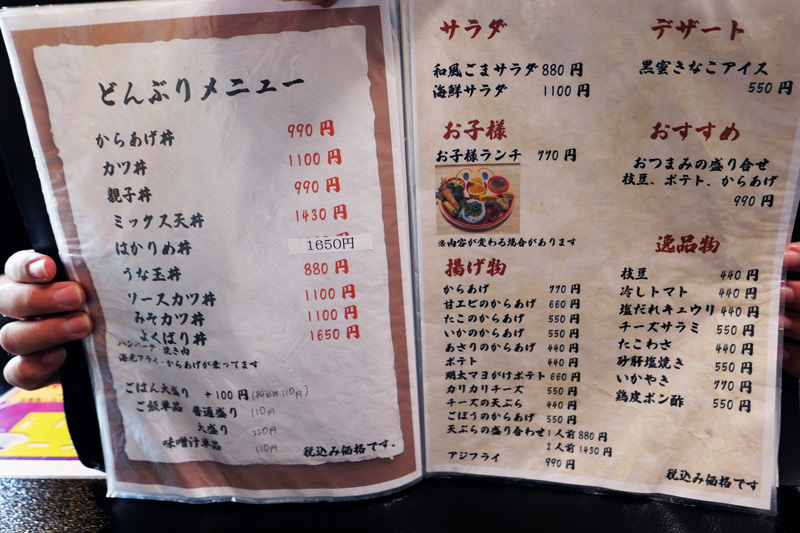 どんぶりメニュー
からあげ丼 990円
カツ丼 1100円
親子丼 990円
ミックス天丼 1430円
はかりめ丼 1650円
うな玉丼 880円
ソースカツ丼 1100円
みそカツ丼 1100円
よくばり丼 1650円
ハンバーグ・焼き肉
海老フライ・からあげが乗ってます
ごはん大盛り +100円(税込み110円)
ご飯単品 普通盛り 110円
大盛り 220円
味噌汁単品 110円
税込み価格です。
サラダ
和風ごまサラダ 880円
海鮮サラダ 1100円
お子様
お子様ランチ 770円
※内容が変わる場合があります
揚げ物
からあげ 770円
甘エビのからあげ 660円
たこのからあげ 550円
いかのからあげ 550円
あさりのからあげ 440円
ポテト 440円
明太マヨがけポテト 660円
カリカリチーズ 550円
チーズの天ぷら 440円
ごぼうのからあげ 550円
天ぷらの盛り合わせ 1人前 880円
2人前 1430円
アジフライ 990円
デザート
黒蜜きなこアイス
550円
おすすめ
おつまみの盛り合せ
枝豆、ポテト、からあげ
990円
逸品物
枝豆 440円
冷しトマト 440円
塩だれキュウリ 440円
チーズサラミ 550円
たこわさ 440円
砂肝塩焼き 550円
いかやき 770円
鶏皮ポン酢 550円
税込み価格です。